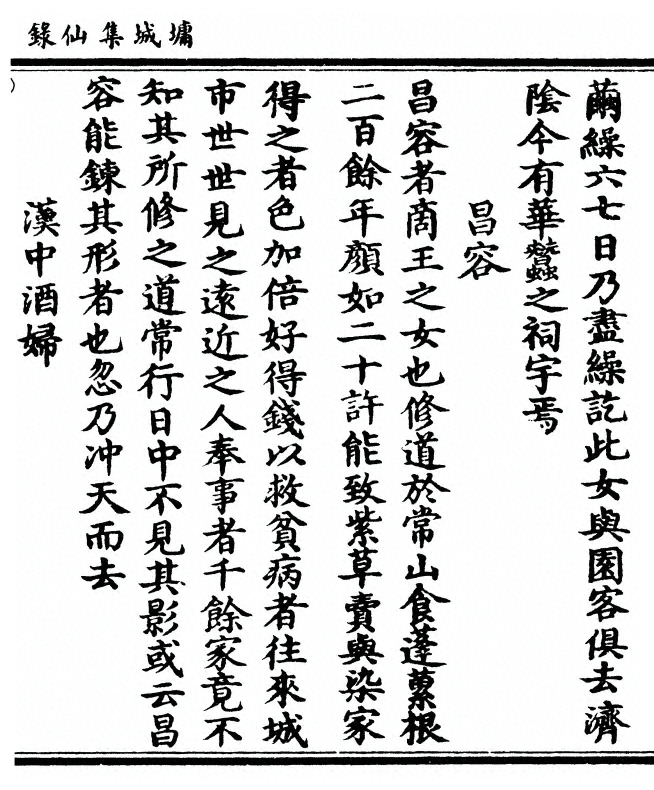 墉城集仙錄
繭繰六七日乃盡繰訖此女與園客俱去濟
陰今有華蠶之祠宇焉
昌容
昌容者商王之女也修道於常山食蓬虆根
二百餘年顏如二十許能致紫草賣與染家
得之者色加倍好得錢以救貧病者往來城
市世世見之遠近之人奉事者千餘家竟不
知其所修之道常行日中不見其影或云昌
容能鍊其形者也忽乃冲天而去
漢中酒婦